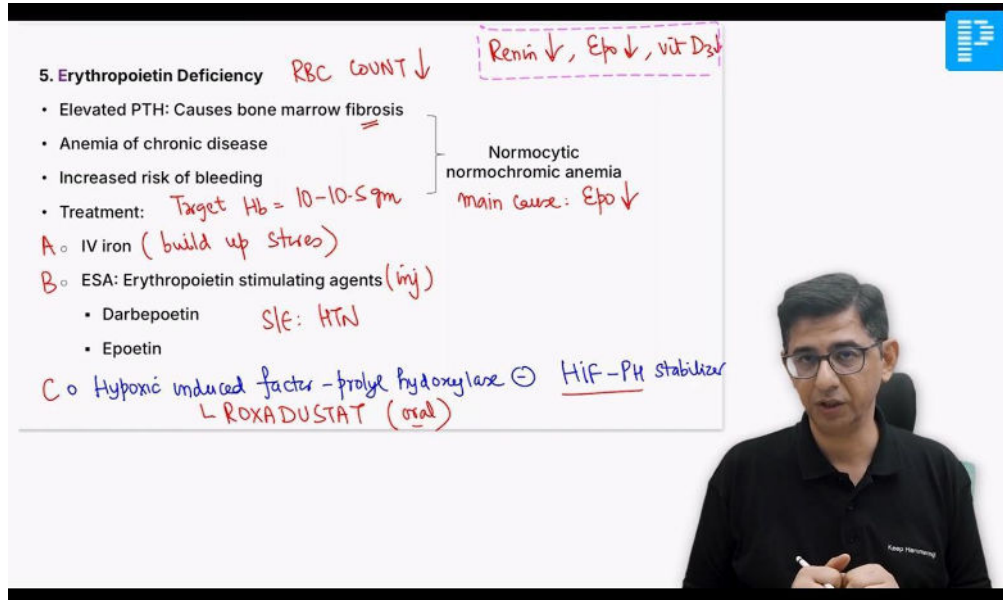 Renin ↓, Epo ↓, vit D3↓
5. Erythropoietin Deficiency RBC COUNT ↓
• Elevated PTH: Causes bone marrow fibrosis
• Anemia of chronic disease
• Increased risk of bleeding
Normocytic
normochromic anemia
main cause: Epo ↓
• Treatment: Target Hb = 10-10.5 gm
A ○ IV iron (build up stores)
B ○ ESA: Erythropoietin stimulating agents (inj)
▪ Darbepoetin S/E: HTN
▪ Epoetin
C ○ Hypoxic induced factor - prolye hydoxylase ⊖ HiF-PH stabilizer
ROXADUSTAT (oral)
Keep Hammering!
P